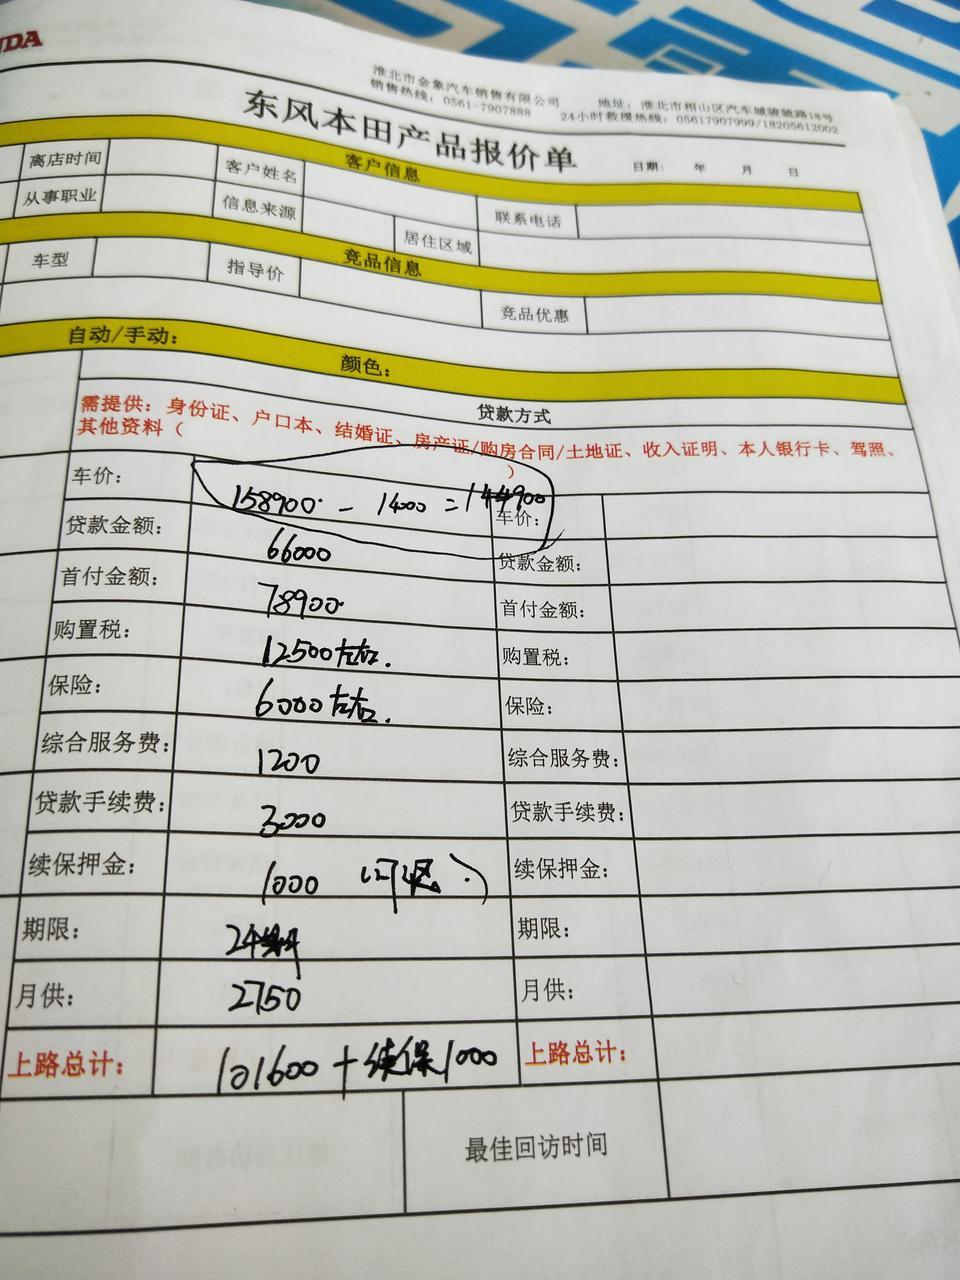 NDA
淮北市金象汽车销售有限公司 地址：淮北市相山区汽车城骏驰路18号
销售热线：0561-7907888 24小时救援热线：05617907999/18205612002
东风本田产品报价单 日期： 年 月 日
客户信息
离店时间 客户姓名 联系电话
从事职业 信息来源 居住区域
竞品信息
车型 指导价 竞品优惠
自动/手动： 颜色：
贷款方式
需提供：身份证、户口本、结婚证、房产证/购房合同/土地证、收入证明、本人银行卡、驾照、
其他资料（ ）
车价： 158900 - 14000 = 144900 车价：
贷款金额： 66000 贷款金额：
首付金额： 78900 首付金额：
购置税： 12500左右. 购置税：
保险： 6000左右. 保险：
综合服务费： 1200 综合服务费：
贷款手续费： 3000 贷款手续费：
续保押金： 1000 （可退.） 续保押金：
期限： 24 期限：
月供： 2750 月供：
上路总计： 101600 + 续保1000 上路总计：
最佳回访时间